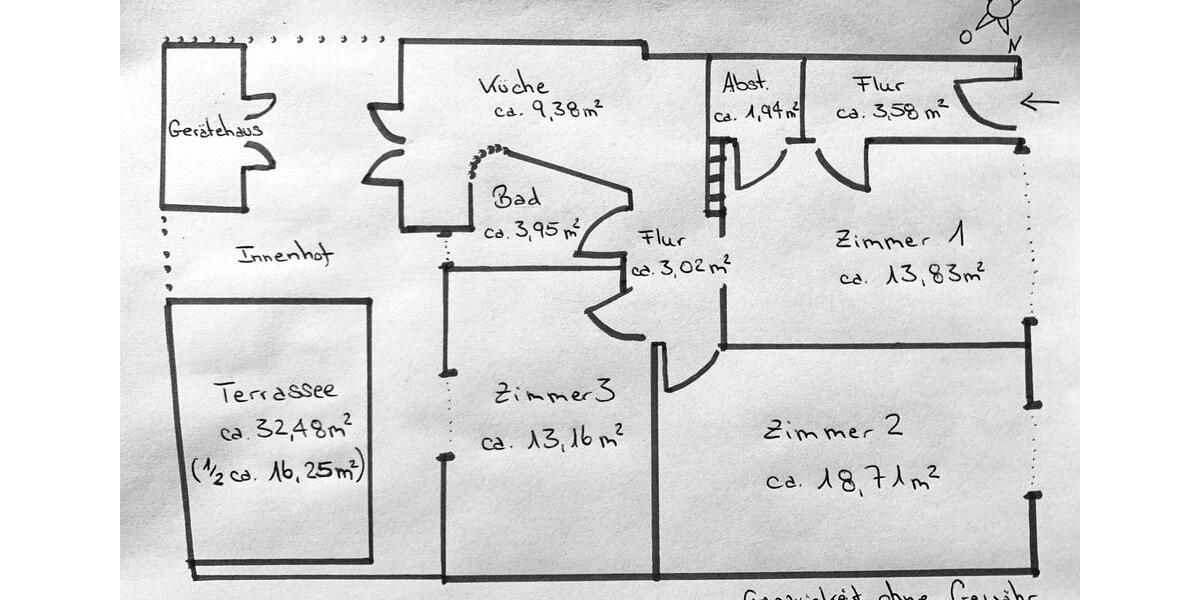 O
N
Küche
ca. 9,38m²
Abst.
ca. 1,94m²
Flur
ca. 3,58m²
Gerätehaus
Bad
ca. 3,95m²
Flur
ca. 3,02m²
Zimmer 1
ca. 13,83m²
Innenhof
Terrassee
ca. 32,48m²
(1/2 ca. 16,25m²)
Zimmer 3
ca. 13,16m²
Zimmer 2
ca. 18,71m²
ohne Gewähr